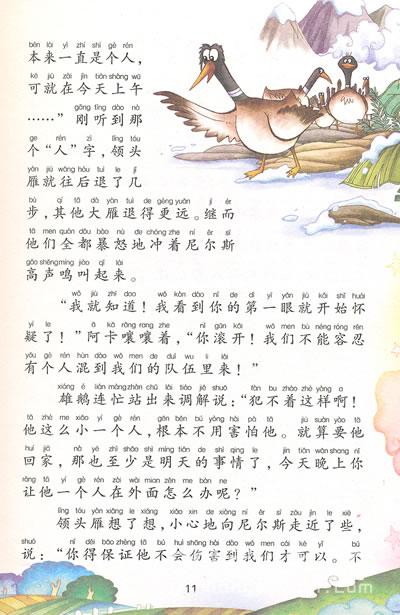 běn lái yì zhí shì gè rén
本来一直是个人，
kě jiù zài jīn tiān shàng wǔ
可就在今天上午
gāng tīng dào nà
……”刚听到那
ge rén zì lǐng tóu
个“人”字，领头
yàn jiù wǎng hòu tuì le jǐ
雁就往后退了几
bù qí tā dà yàn tuì de gèng yuǎn jì ér
步，其他大雁退得更远。继而
tā men quán dōu bào nù de chōng zhe ní ěr sī
他们全都暴怒地冲着尼尔斯
gāo shēng míng jiào qǐ lái
高声鸣叫起来。
wǒ jiù zhī dao wǒ kàn dào nǐ de dì yī yǎn jiù kāi shǐ huái
“我就知道！我看到你的第一眼就开始怀
yí le ā kǎ rāng rang zhe nǐ gǔn kāi wǒ men bù néng róng rěn
疑了！”阿卡嚷嚷着，“你滚开！我们不能容忍
yǒu gè rén hùn dào wǒ men de duì wu li lái
有个人混到我们的队伍里来！”
xióng é lián máng zhàn chū lái tiáo jiě shuō fàn bu zháo zhè yàng a
雄鹅连忙站出来调解说：“犯不着这样啊！
tā zhè me xiǎo yí gè rén gēn běn bú yòng hài pà tā jiù suàn yào tā
他这么小一个人，根本不用害怕他。就算要他
huí jiā nà yě zhì shǎo shì míng tiān de shì qing le jīn tiān wǎn shang nǐ
回家，那也至少是明天的事情了，今天晚上你
ràng tā yí gè rén zài wài mian zěn me bàn ne
让他一个人在外面怎么办呢？”
lǐng tóu yàn xiǎng le xiǎng xiǎo xīn de xiàng ní ěr sī zǒu jìn le xiē
领头雁想了想，小心地向尼尔斯走近了些，
shuō nǐ děi bǎo zhèng tā bú huì shāng hài dào wǒ men cái kě yǐ bú
说：“你得保证他不会伤害到我们才可以。不
11